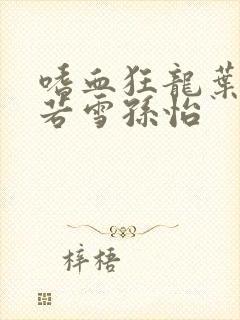 嗜血狂龍葉
若雪孫怡
梓梧